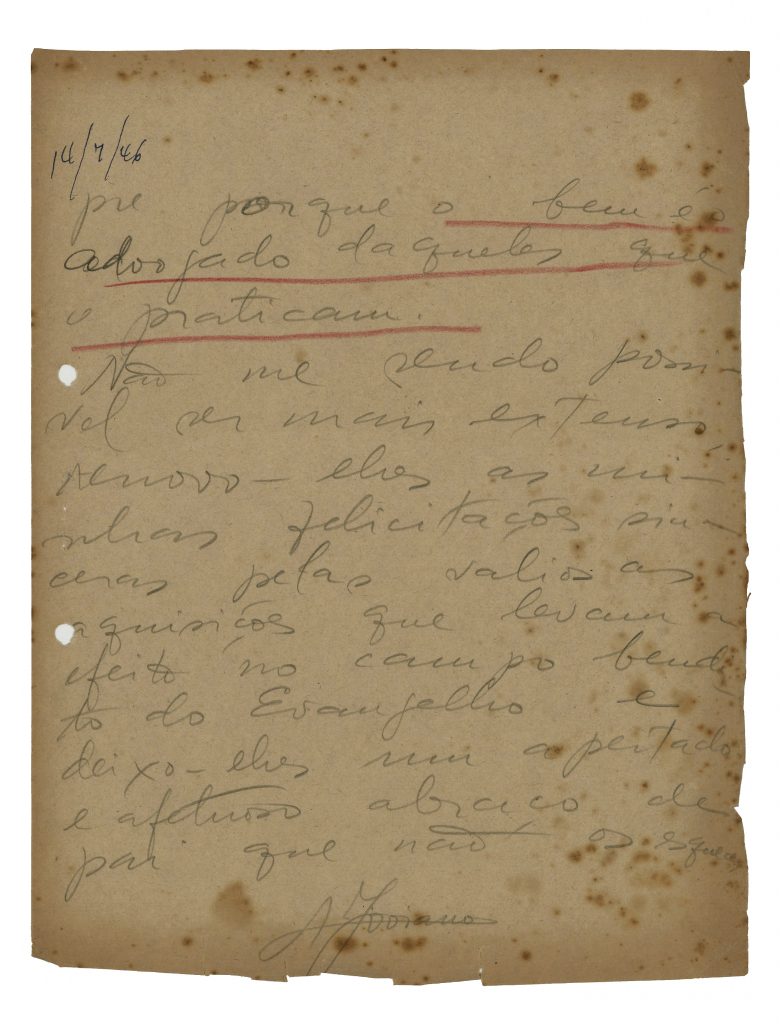 14/7/46
pre porque o bem é o
advogado daqueles que
o praticam.
Não me sendo possi-
vel ser mais extenso,
renovo-lhes as mi-
nhas felicitações sin-
ceras pelas valiosas
aquisições que levam a
efeito no campo bendi-
to do Evangelho e
deixo-lhes um apertado
e afetuoso abraço de
pai que não os esquece